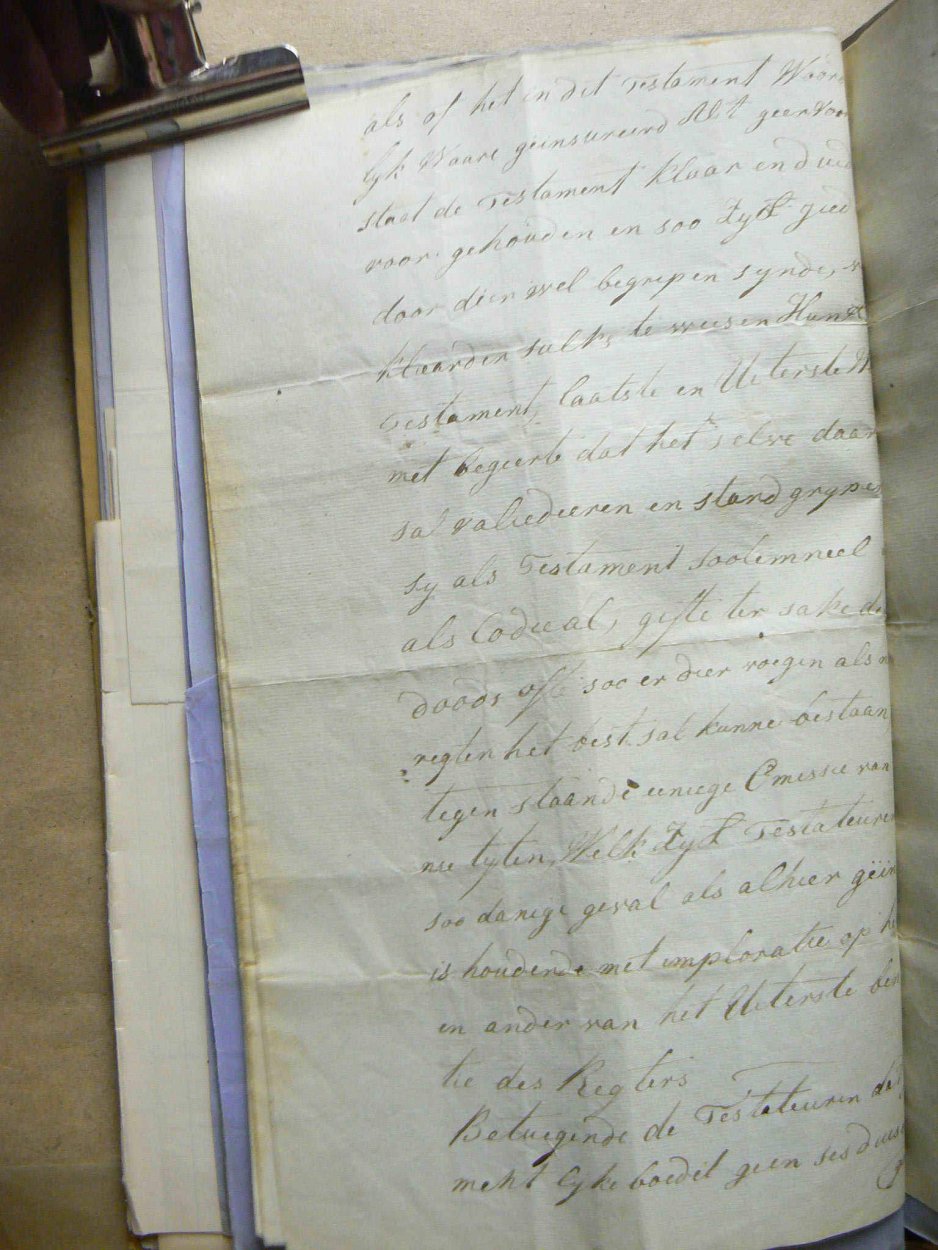 als of het in dit Testament Woor
lyk Waare geinsureerd Al't geen voor
staat de Testament klaar en duid
voor gehouden en soo zyt gied
door dien wel begrepen synde, v
klaarden sulks te weesen Hun
Testament, laatste en Uiterste W
met begeerte dat het selve daar
sal valiedieren en stand grypen
sy als Testament soolemneel
als Codieal, gifte ter sake de
doods ofte soo er dier voegen als n
regten het best sal kunne bestaan
tegen staande eeniege Omissie van
nie tyten, Welk zyt Testateuren
soo danige geval als alhier geïn
is houdende met imploratie op h
en ander van het Uiterste ben
tie des Regters
Betuegende de Testateuren de
ment lyke boedel geen ses duis